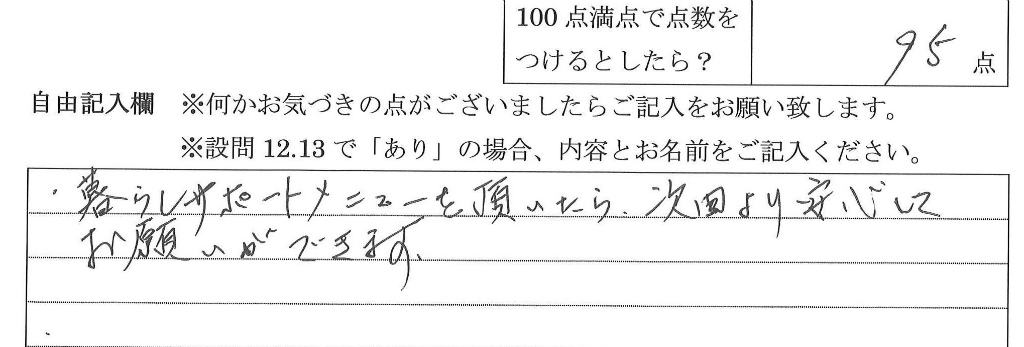 100点満点で点数を
つけるとしたら？
95 点
自由記入欄 ※何かお気づきの点がございましたらご記入をお願い致します。
※設問12.13で「あり」の場合、内容とお名前をご記入ください。
・暮らしサポートメニューを頂いたら、次回より安心して
お願いができます。